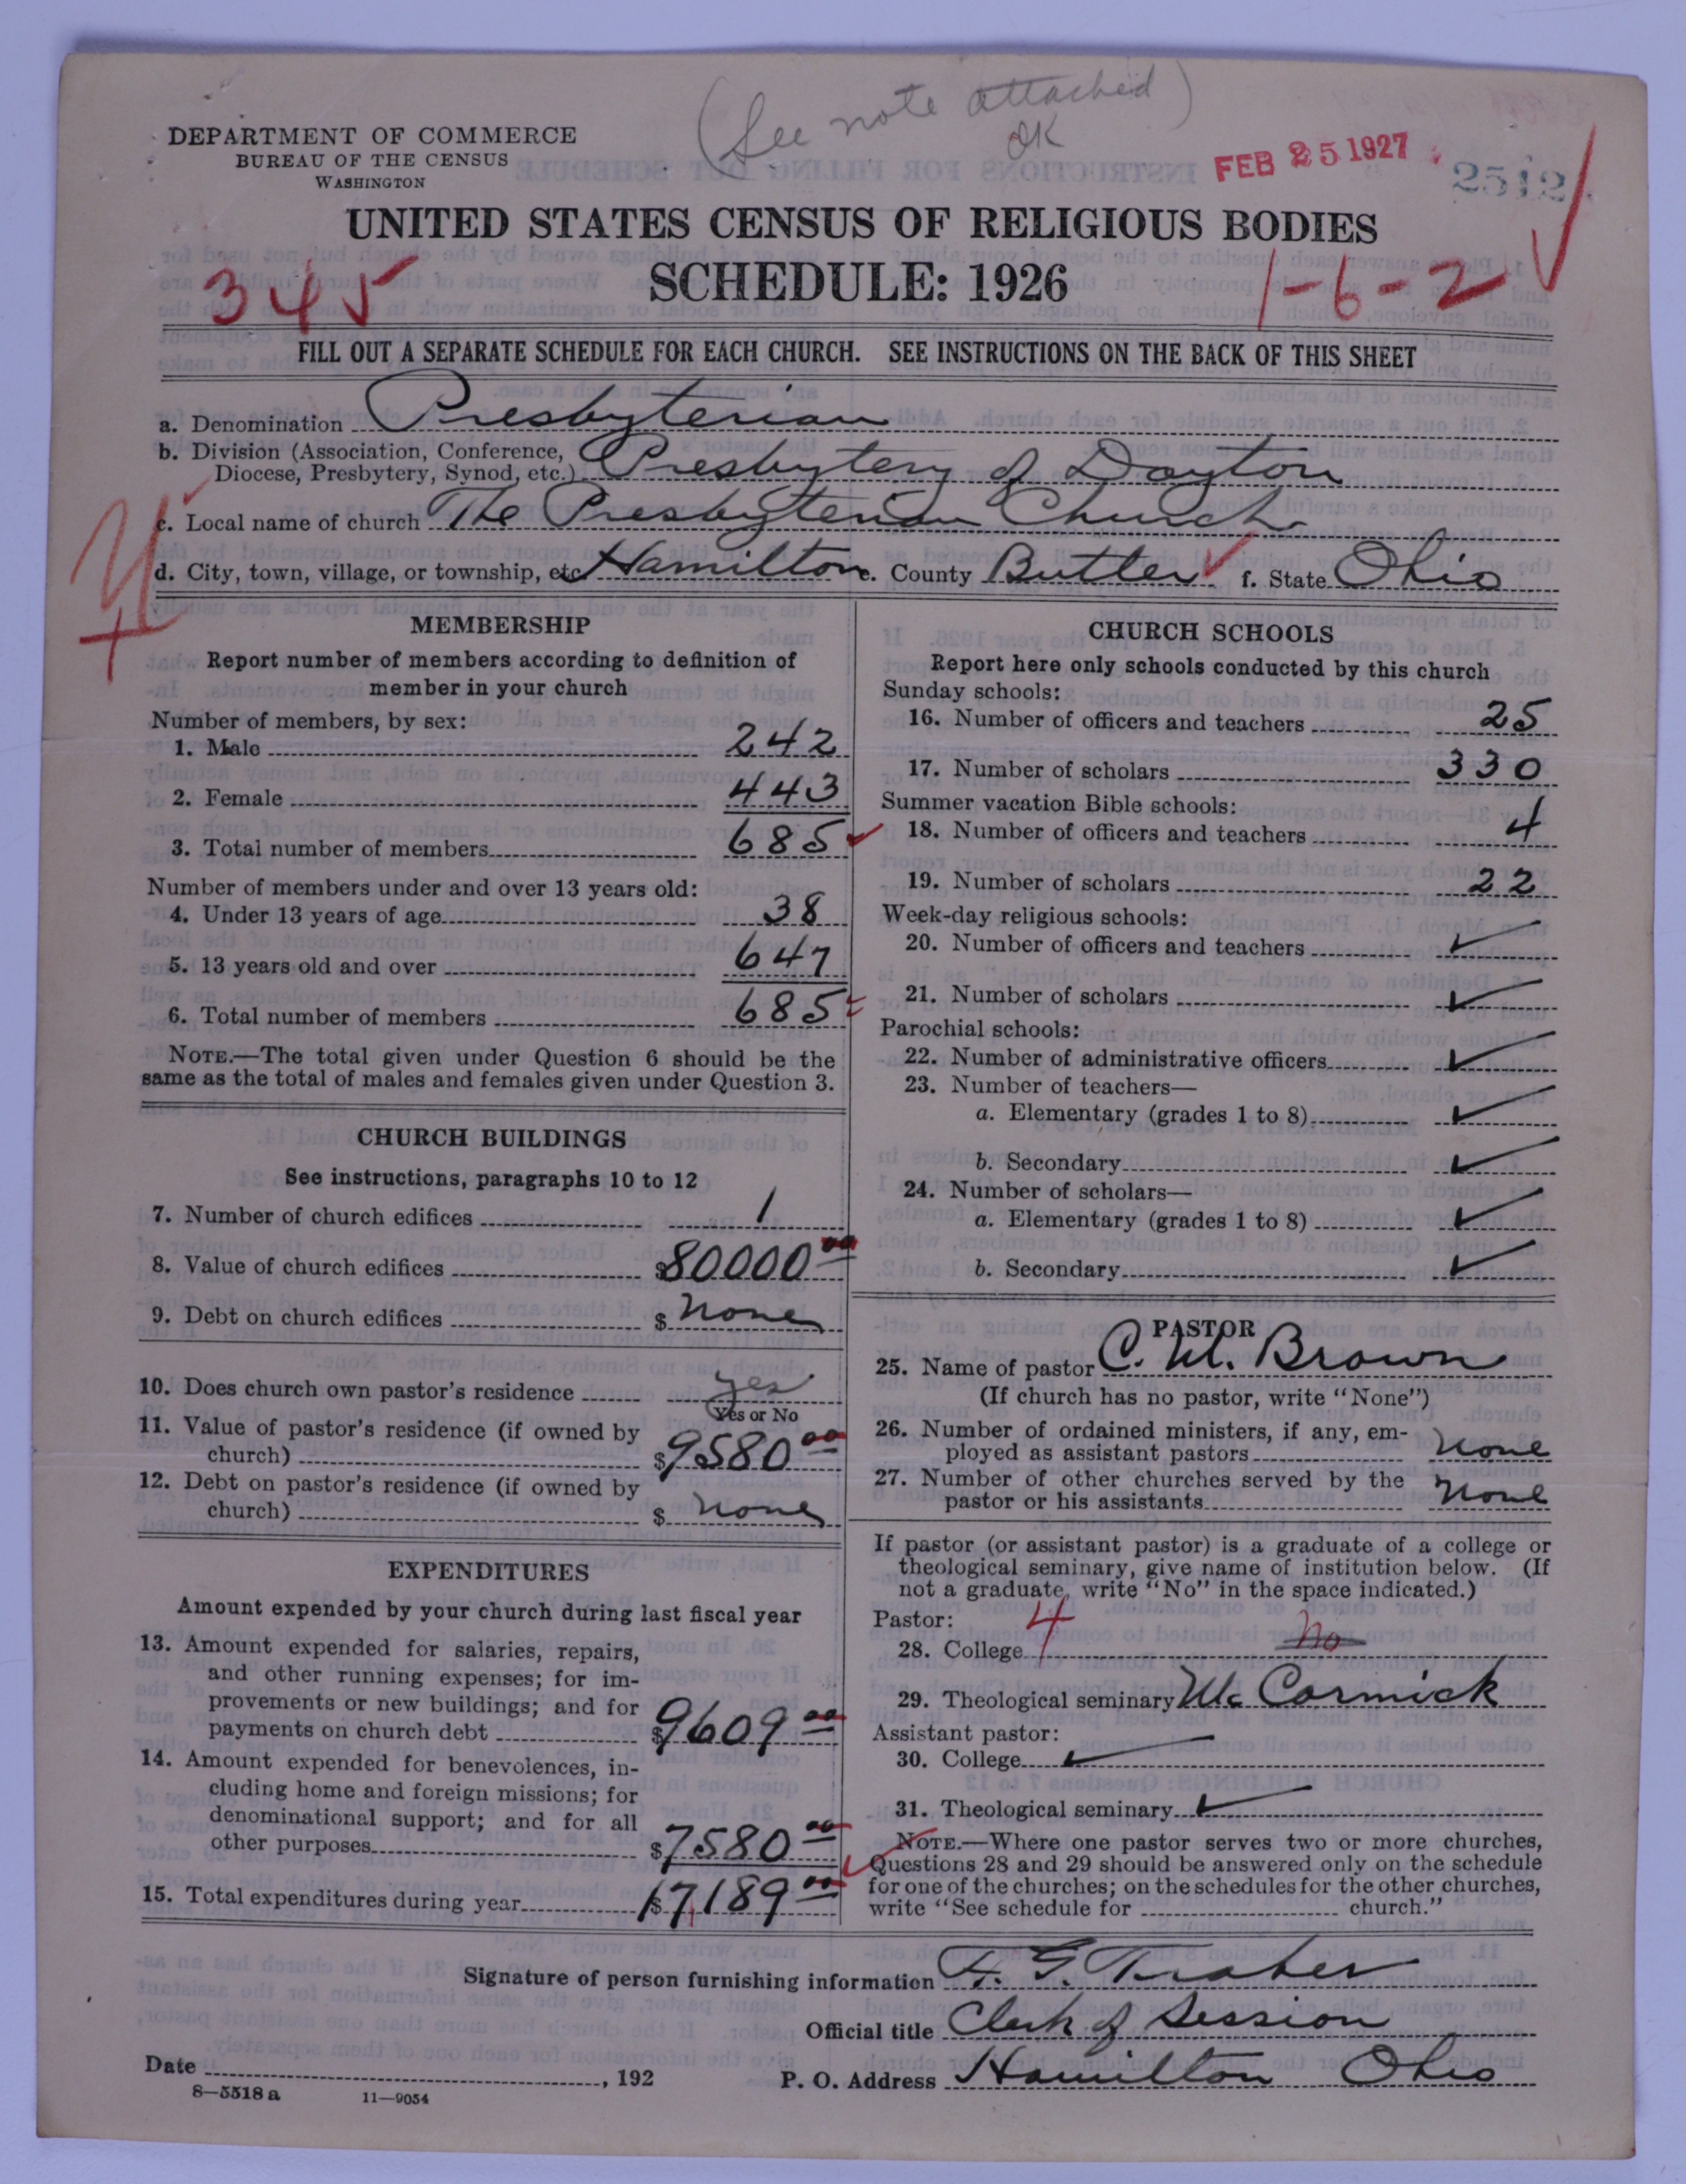 (See note attached)
OK
DEPARTMENT OF COMMERCE
BUREAU OF THE CENSUS
WASHINGTON
FEB 25 1927
2512
UNITED STATES CENSUS OF RELIGIOUS BODIES
SCHEDULE: 1926
345
1-6-2
FILL OUT A SEPARATE SCHEDULE FOR EACH CHURCH. SEE INSTRUCTIONS ON THE BACK OF THIS SHEET
a. Denomination Presbyterian
b. Division (Association, Conference,
Diocese, Presbytery, Synod, etc.) Presbytery of Dayton
c. Local name of church The Presbyterian Church
d. City, town, village, or township, etc. Hamilton e. County Butler f. State Ohio
MEMBERSHIP
Report number of members according to definition of
member in your church
Number of members, by sex:
1. Male 242
2. Female 443
3. Total number of members 685
Number of members under and over 13 years old:
4. Under 13 years of age 38
5. 13 years old and over 647
6. Total number of members 685
NOTE.—The total given under Question 6 should be the
same as the total of males and females given under Question 3.
CHURCH BUILDINGS
See instructions, paragraphs 10 to 12
7. Number of church edifices 1
8. Value of church edifices $80000 00
9. Debt on church edifices $ none
10. Does church own pastor's residence yes
Yes or No
11. Value of pastor's residence (if owned by
church) $9580 00
12. Debt on pastor's residence (if owned by
church) $ none
EXPENDITURES
Amount expended by your church during last fiscal year
13. Amount expended for salaries, repairs,
and other running expenses; for im-
provements or new buildings; and for
payments on church debt $9609 00
14. Amount expended for benevolences, in-
cluding home and foreign missions; for
denominational support; and for all
other purposes $7580 00
15. Total expenditures during year $17,189 00
CHURCH SCHOOLS
Report here only schools conducted by this church
Sunday schools:
16. Number of officers and teachers 25
17. Number of scholars 330
Summer vacation Bible schools:
18. Number of officers and teachers 4
19. Number of scholars 22
Week-day religious schools:
20. Number of officers and teachers ✓
21. Number of scholars ✓
Parochial schools:
22. Number of administrative officers ✓
23. Number of teachers—
a. Elementary (grades 1 to 8) ✓
b. Secondary ✓
24. Number of scholars—
a. Elementary (grades 1 to 8) ✓
b. Secondary ✓
PASTOR
25. Name of pastor C. W. Brown
(If church has no pastor, write "None")
26. Number of ordained ministers, if any, em-
ployed as assistant pastors none
27. Number of other churches served by the
pastor or his assistants none
If pastor (or assistant pastor) is a graduate of a college or
theological seminary, give name of institution below. (If
not a graduate, write "No" in the space indicated.)
Pastor:
28. College 4 No
29. Theological seminary McCormick
Assistant pastor:
30. College ✓
31. Theological seminary ✓
NOTE.—Where one pastor serves two or more churches,
Questions 28 and 29 should be answered only on the schedule
for one of the churches; on the schedules for the other churches,
write "See schedule for church."
Signature of person furnishing information F. G. Traber
Official title Clerk of Session
Date , 192
P. O. Address Hamilton Ohio
8—5518 a 11—9054